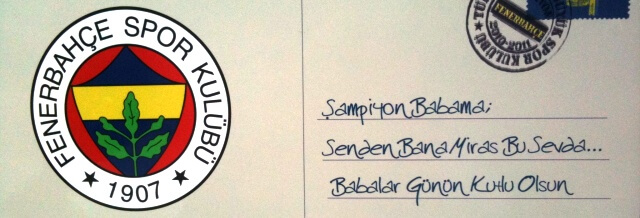 FENERBAHÇE SPOR KULÜBÜ
★ 1907 ★
FENERBAHÇE
SPOR KULÜBÜ
Şampiyon Babama;
Senden Bana Miras Bu Sevda...
Babalar Günün Kutlu Olsun